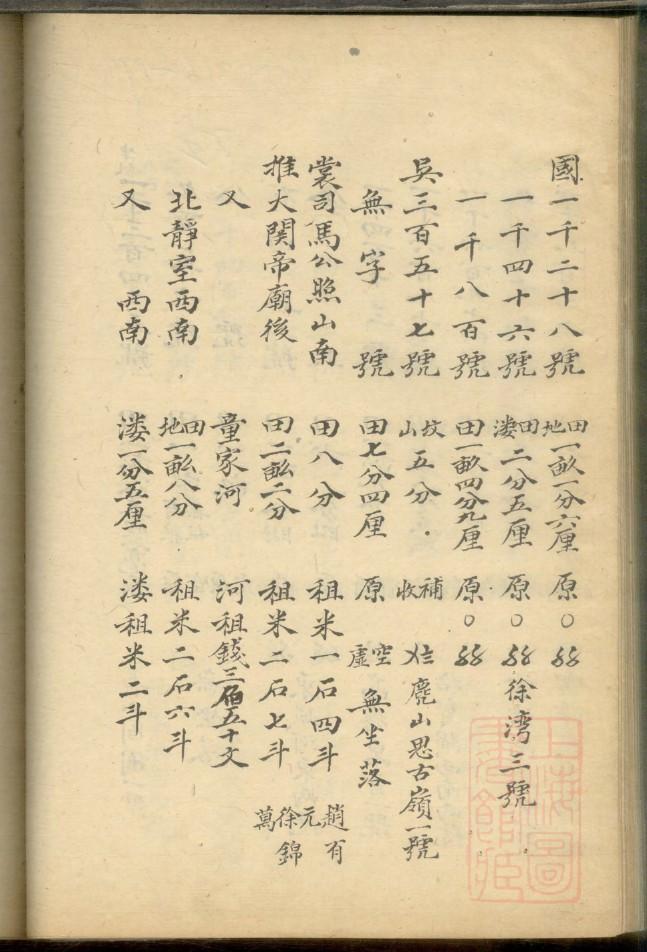 國一千二十八號 田地一畝一分六厘 原○
一千四十六號 田溇二分五厘 原○ 徐湾三號
一千八百號 田一畝四分九厘 原○
吳三百五十七號 坟山五分 補收 麂山思古嶺一號
無字號 田七分四厘 原 空虛無坐落
裳司馬公照山南 田八分 租米一石四斗 趙有元
推大関帝廟後 田二畝二分 租米二石七斗 徐錦萬
又 童家河 河租錢三佰五十文
北靜室西南 田地一畝八分 租米二石六斗
又 西南 溇一分五厘 溇租米二斗